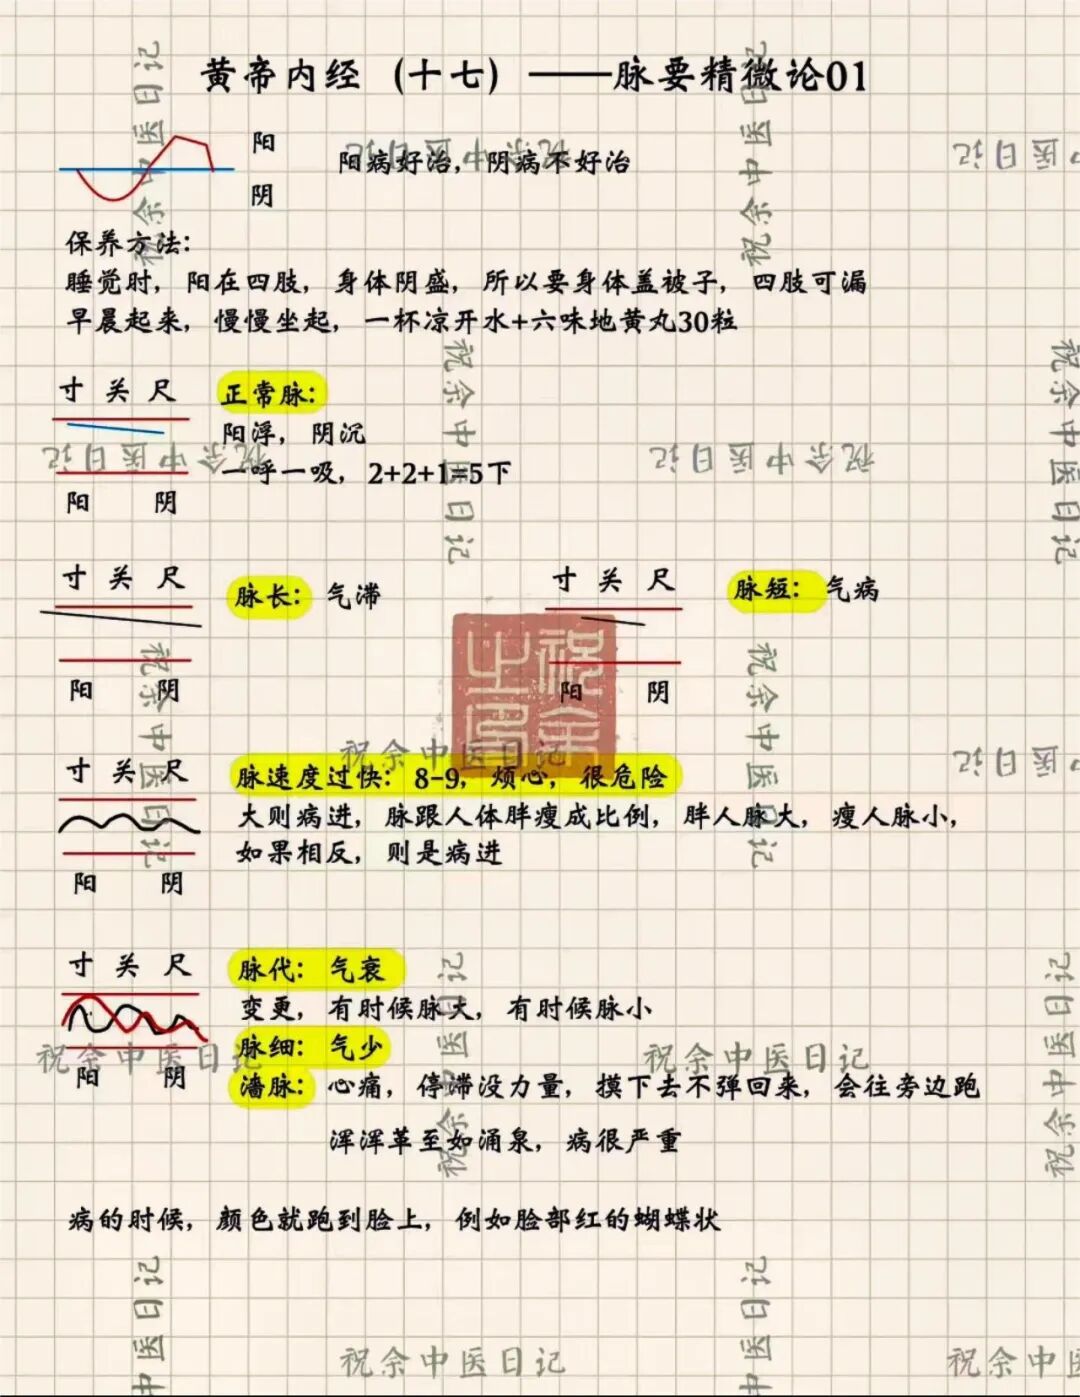 黄帝内经（十七）——脉要精微论01
阳
阳病好治，阴病不好治
阴
保养方法：
睡觉时，阳在四肢，身体阴盛，所以要身体盖被子，四肢可漏
早晨起来，慢慢坐起，一杯凉开水+六味地黄丸30粒
寸 关 尺
正常脉：
阳浮，阴沉
一呼一吸，2+2+1=5下
阳 阴
寸 关 尺
脉长：气滞
阳 阴
寸 关 尺
脉短：气病
阳 阴
寸 关 尺
脉速度过快：8-9，烦心，很危险
大则病进，脉跟人体胖瘦成比例，胖人脉大，瘦人脉小，
如果相反，则是病进
阳 阴
寸 关 尺
脉代：气衰
变更，有时候脉大，有时候脉小
脉细：气少
阳 阴
潘脉：心痛，停滞没力量，摸下去不弹回来，会往旁边跑
浑浑革至如涌泉，病很严重
病的时候，颜色就跑到脸上，例如脸部红的蝴蝶状
祝余中医日记
祝余中医日记
祝余中医日记
祝余中医日记
祝余中医日记
祝余中医日记
祝余中医日记
祝余中医日记
祝余中医日记
祝余中医日记
祝余中医日记
祝余中医日记
祝余中医日记